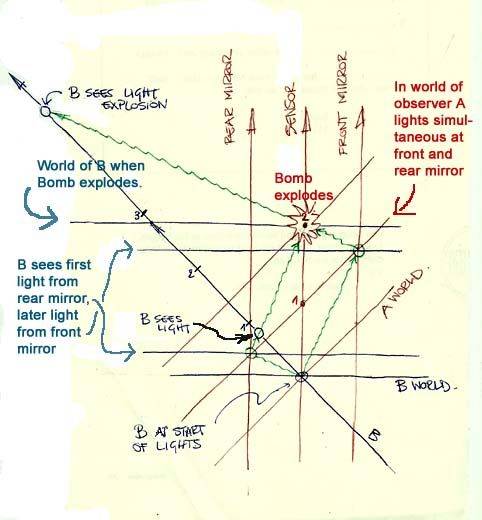 B SEES LIGHT
EXPLOSION
REAR MIRROR
SENSOR
FRONT MIRROR
In world of
observer A
lights simul-
taneous at
front and
rear mirror
World of B when
Bomb explodes.
Bomb
explodes
2
3
B sees first
light from
rear mirror,
later light
from front
mirror
2
1
1
B SEES
LIGHT
A WORLD
B WORLD.
B AT START
OF LIGHTS
B